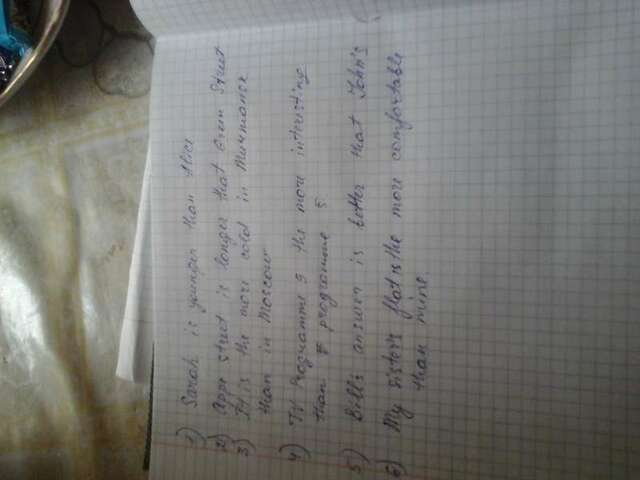 1) Sarah is younger than Alice
2) Appe street is longer that Green Street
3) It is the more cold in Murmansk
than in Moscow
4) TV Programme 9 the more interesting
than programme 5
5) Bills answer is better that John's
6) My sisters flat is the more comfortable
than mine